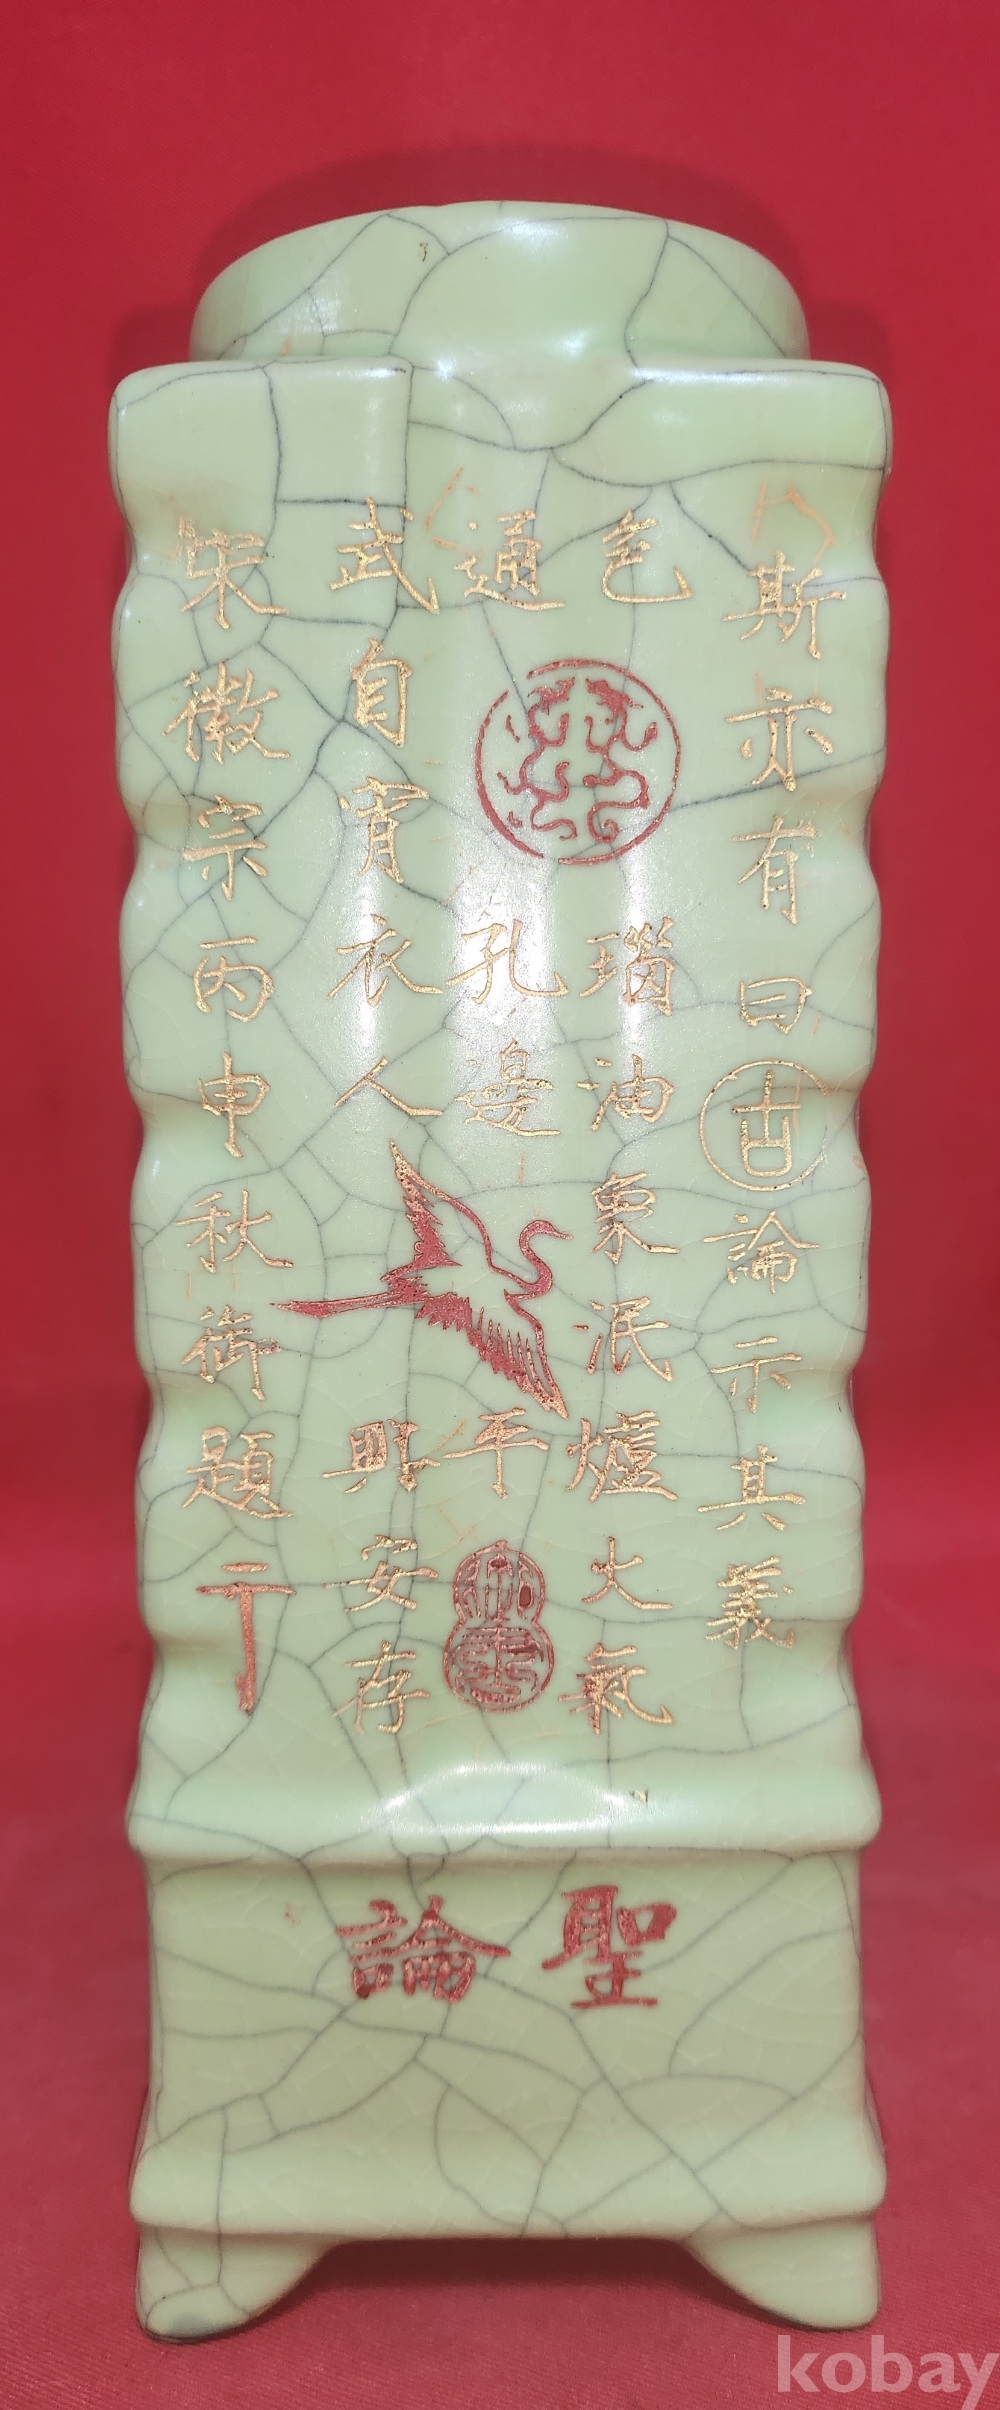 斯亦有曰古論示其義
色瑙油累泯爐大氣
通孔邊平
武自宵衣人明安存
宋徽宗丙申秋御題
聖論
kobay